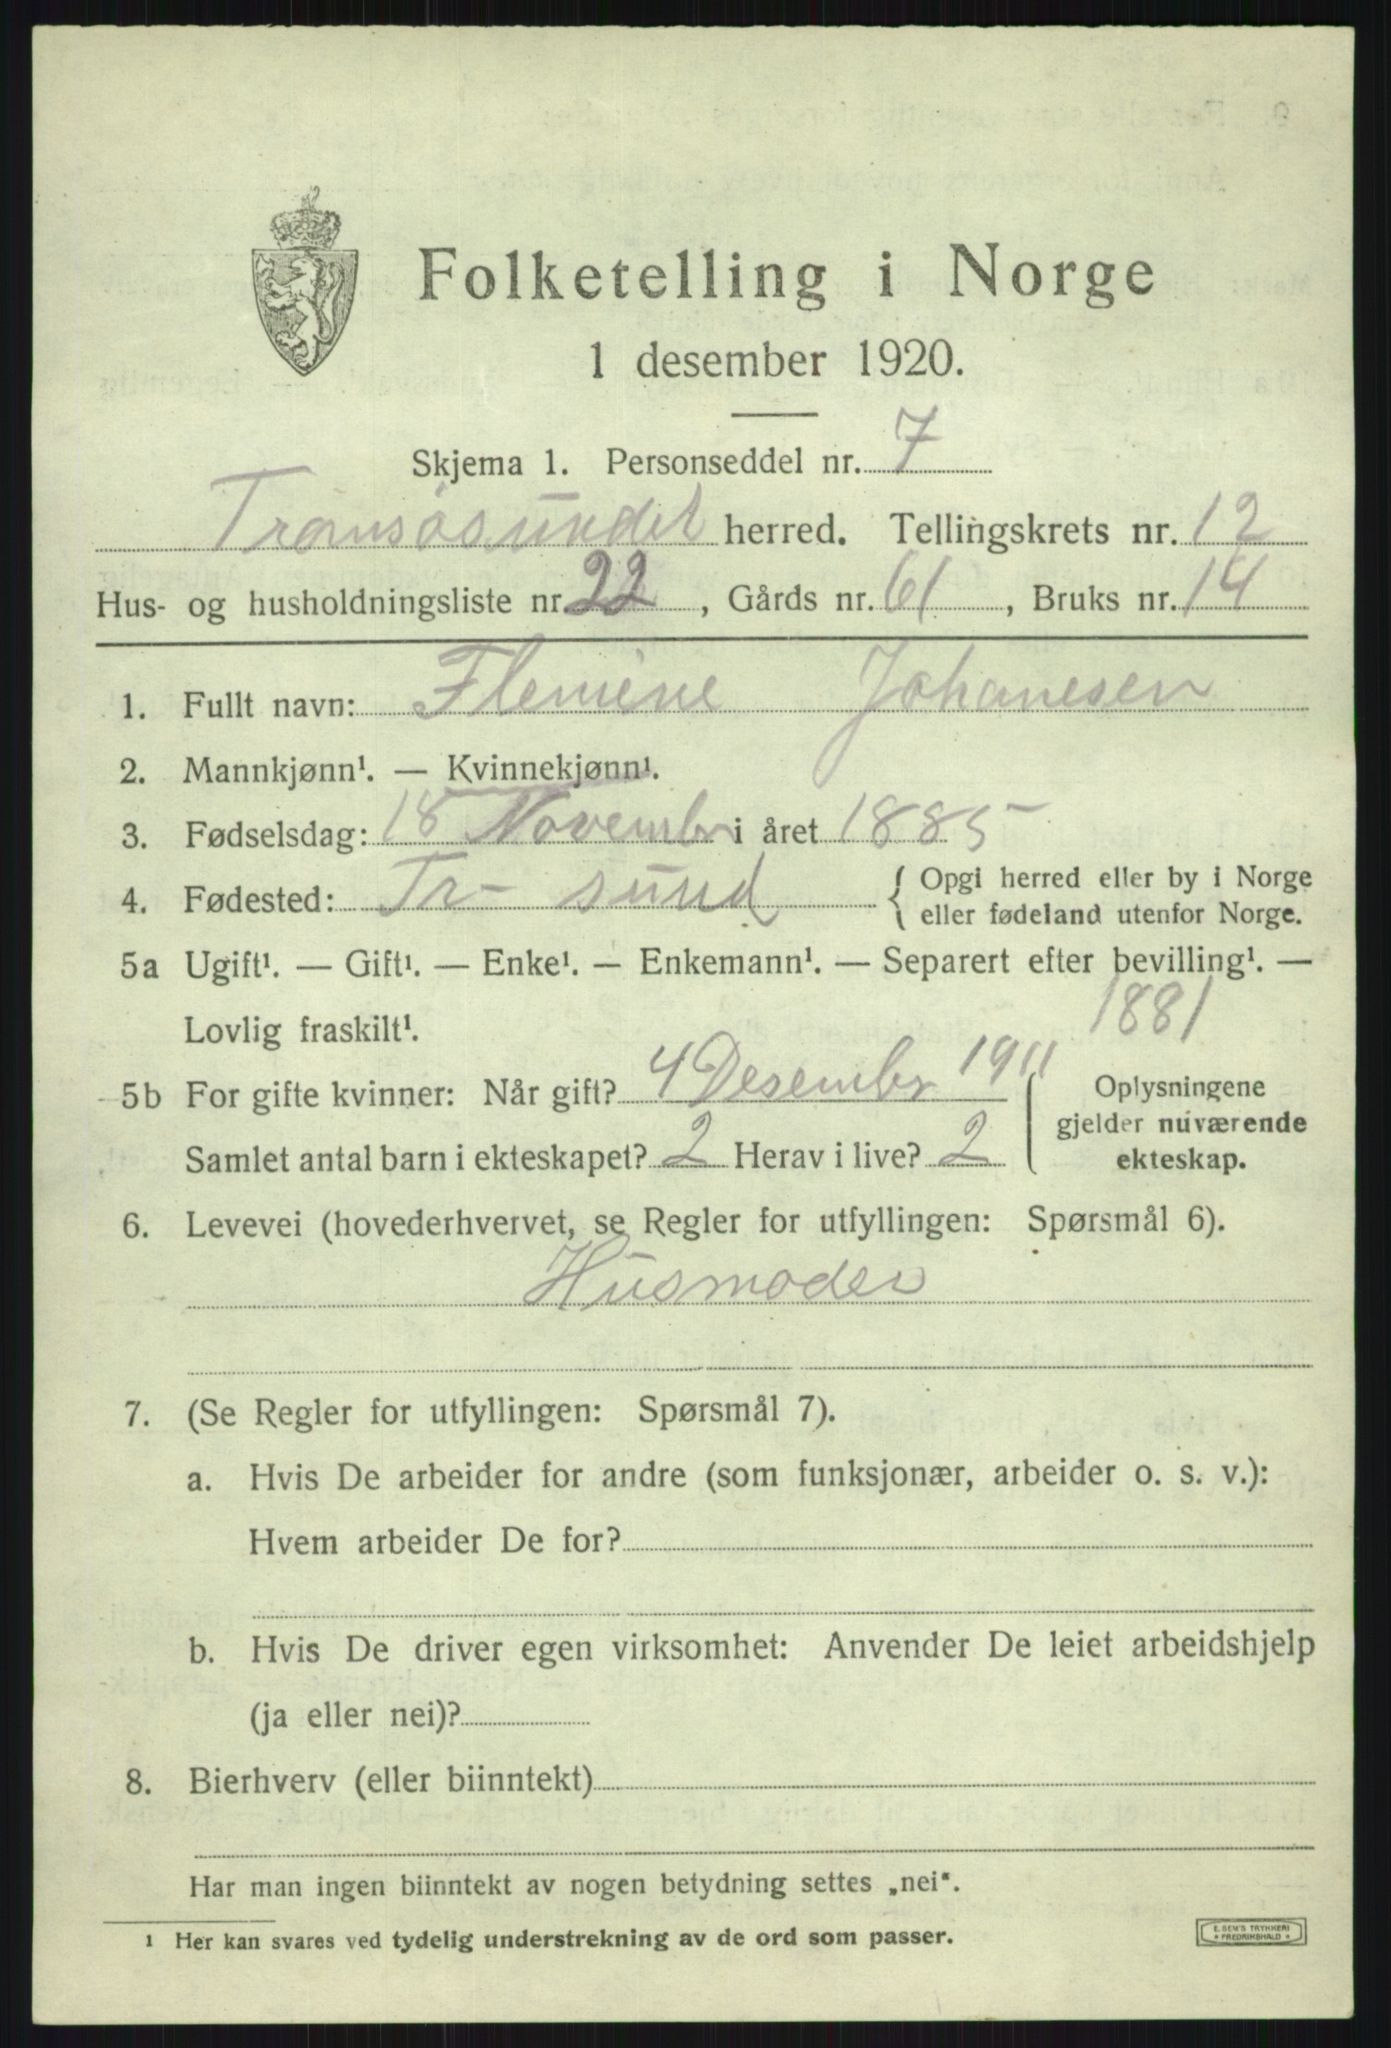 Folketelling i Norge
1 desember 1920.
Skjema 1. Personseddel nr. 7
Tromsøsundet herred. Tellingskrets nr. 12
Hus- og husholdningsliste nr. 22, Gårds nr. 61, Bruks nr. 14
1. Fullt navn: Flemine Johanesen
2. Mannkjønn¹. — Kvinnekjønn¹.
3. Fødselsdag: 18 Novembr i året 1885
4. Fødested: Tr- sund { Opgi herred eller by i Norge
eller fødeland utenfor Norge.
5a Ugift¹. — Gift¹. — Enke¹. — Enkemann¹. — Separert efter bevilling¹. —
Lovlig fraskilt¹. 1881
5b For gifte kvinner: Når gift? 4 Desembr 1911
Samlet antal barn i ekteskapet? 2 Herav i live? 2
Oplysningene
gjelder nuværende
ekteskap.
6. Levevei (hovederhvervet, se Regler for utfyllingen: Spørsmål 6).
Husmoder
7. (Se Regler for utfyllingen: Spørsmål 7).
a. Hvis De arbeider for andre (som funksjonær, arbeider o. s. v.):
Hvem arbeider De for?
b. Hvis De driver egen virksomhet: Anvender De leiet arbeidshjelp
(ja eller nei)?
8. Bierhverv (eller biinntekt)
Har man ingen biinntekt av nogen betydning settes „nei".
¹ Her kan svares ved tydelig understrekning av de ord som passer.
E. SEM'S TRYKKERI
* FREDRIKSHALD *